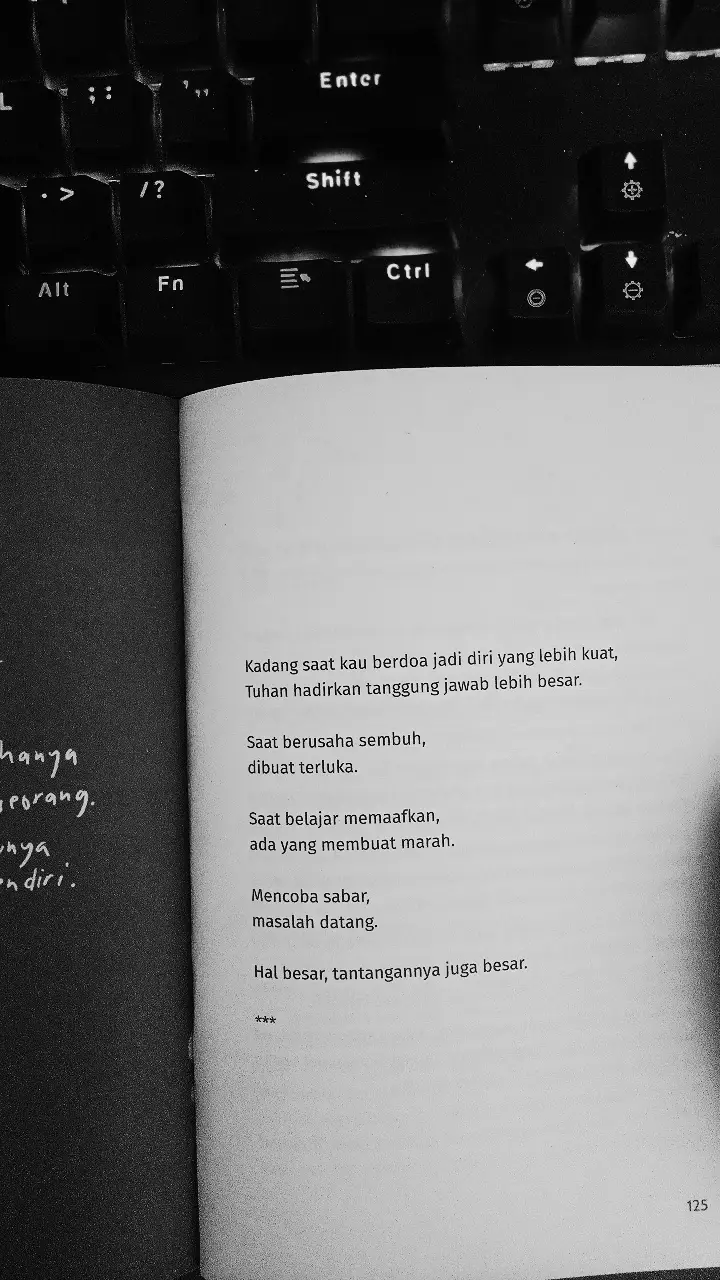 L
; :
' ,,
Enter
. >
/ ?
Shift
Alt
Fn
Ctrl
hanya
diri.
Kadang saat kau berdoa jadi diri yang lebih kuat,
Tuhan hadirkan tanggung jawab lebih besar.
Saat berusaha sembuh,
dibuat terluka.
Saat belajar memaafkan,
ada yang membuat marah.
Mencoba sabar,
masalah datang.
Hal besar, tantangannya juga besar.
***
125